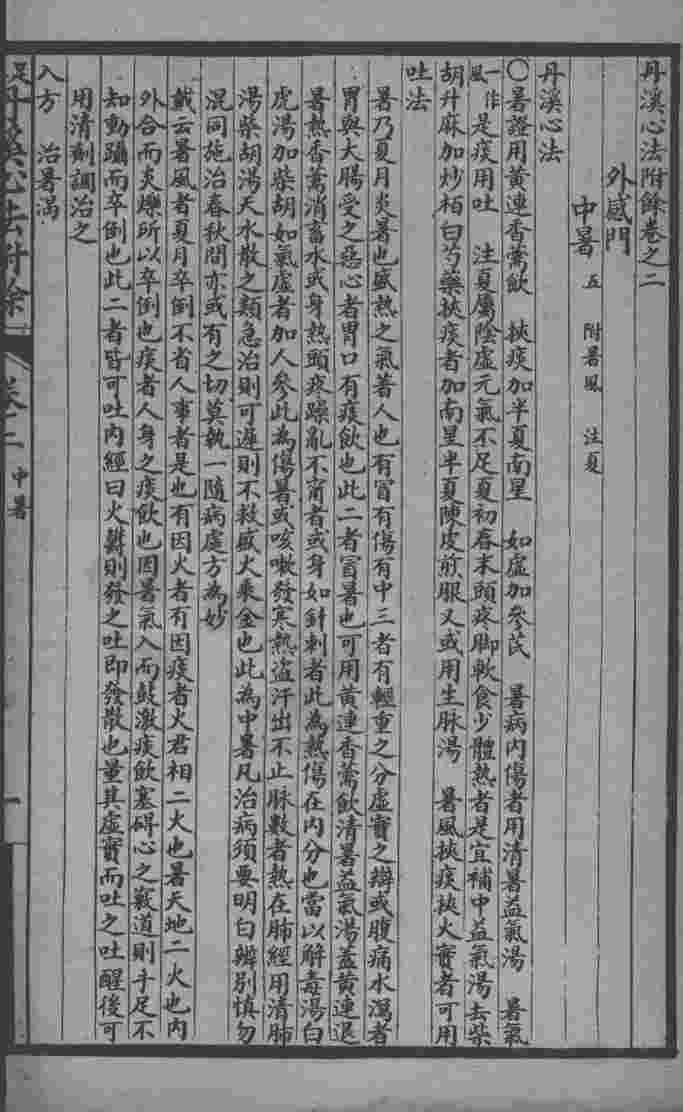 丹溪心法附餘卷之二
外感門
中暑 五 附暑風 注夏
丹溪心法
〇暑證用黃連香薷飲 挾痰加半夏南星 如虛加參芪 暑病內傷者用清暑益氣湯 暑氣
一作風是痰用吐 注夏屬陰虛元氣不足夏初春末頭疼脚軟食少體熱者是宜補中益氣湯去柴
胡升麻加炒栢白芍藥挾痰者加南星半夏陳皮煎服又或用生脉湯 暑風挾痰挾火實者可用
吐法
暑乃夏月炎暑也盛熱之氣著人也有冒有傷有中三者有輕重之分虛實之辯或腹痛水瀉者
胃與大腸受之惡心者胃口有痰飲也此二者冒暑也可用黃連香薷飲清暑益氣湯蓋黃連退
暑熱香薷消畜水或身熱頭疼躁亂不甯者或身如針刺者此為熱傷在內分也當以解毒湯白
虎湯加柴胡如氣虛者加人參此為傷暑或咳嗽發寒熱盜汗出不止脉數者熱在肺經用清肺
湯柴胡湯天水散之類急治則可遲則不救盛火乘金也此為中暑凡治病須要明白辨別慎勿
混同施治春秋間亦或有之切莫執一隨病處方為妙
戴云暑風者夏月卒倒不省人事者是也有因火者有因痰者火君相二火也暑天地二火也內
外合而炎爍所以卒倒也痰者人身之痰飲也因暑氣入而鼓激痰飲塞碍心之竅道則手足不
知動躡而卒倒也此二者皆可吐內經曰火鬱則發之吐即發散也量其虛實而吐之吐醒後可
用清劑調治之
入方 治暑渴
丹溪心法附餘 卷二 中暑 一